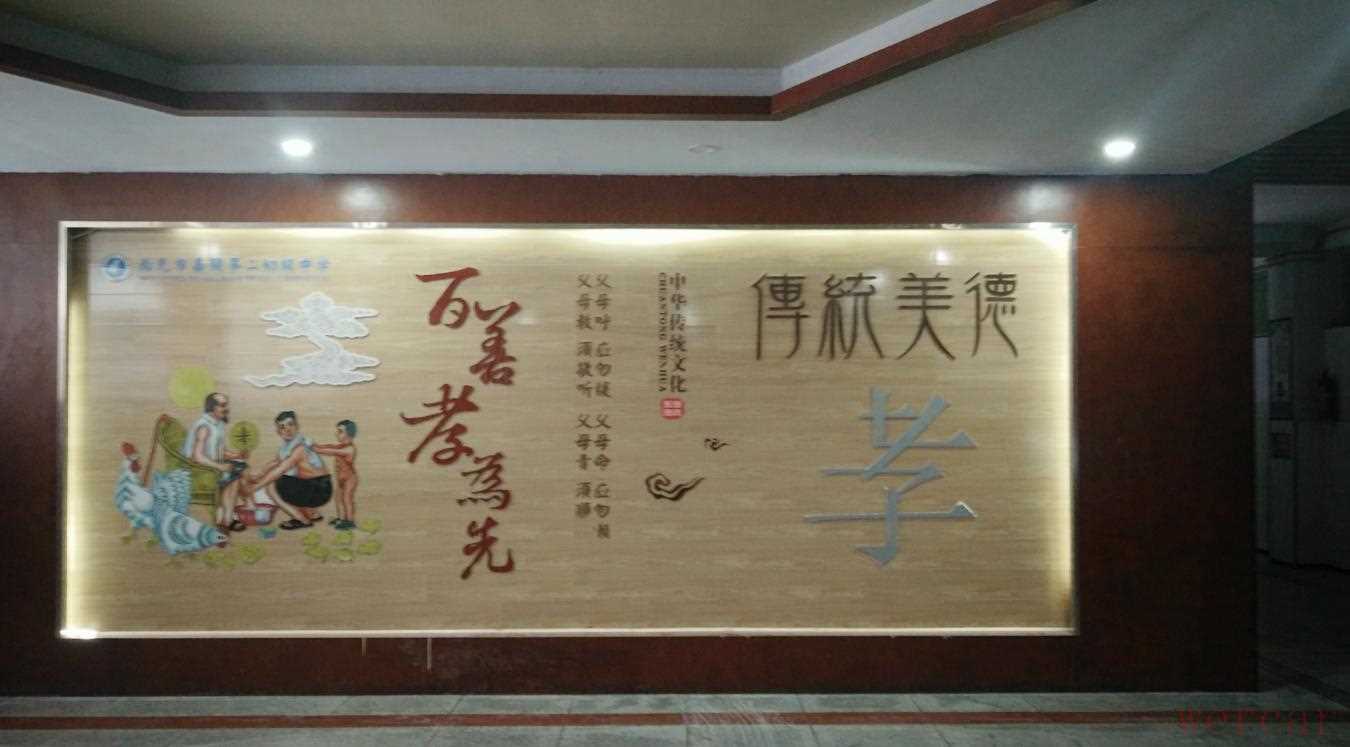 南充市嘉陵第二初级中学
百善
孝為先
父母呼 应勿缓 父母命 应勿懒
父母教 须敬听 父母责 须顺
中华传统文化
CHUANTONG WENHUA
傳統美德
孝
孝